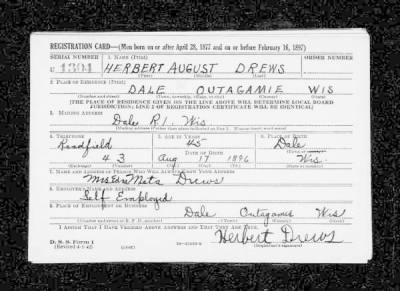 REGISTRATION CARD—(Men born on or after April 28, 1877 and on or before February 16, 1897)
SERIAL NUMBER 1. NAME (Print) ORDER NUMBER
U 1304 HERBERT AUGUST DREWS
(First) (Middle) (Last)
2. PLACE OF RESIDENCE (Print)
DALE OUTAGAMIE WIS
(Number and street) (Town, township, village, or city) (County) (State)
[THE PLACE OF RESIDENCE GIVEN ON THE LINE ABOVE WILL DETERMINE LOCAL BOARD
JURISDICTION; LINE 2 OF REGISTRATION CERTIFICATE WILL BE IDENTICAL]
3. MAILING ADDRESS
Dale R1. Wis.
4. TELEPHONE 5. AGE IN YEARS 6. PLACE OF BIRTH
Readfield 45 Dale
DATE OF BIRTH
4 3 Aug 17 1896 Wis.
(Exchange) (Number) (Mo.) (Day) (Yr.) (State or country)
7. NAME AND ADDRESS OF PERSON WHO WILL ALWAYS KNOW YOUR ADDRESS
Meta Drews
8. EMPLOYER'S NAME AND ADDRESS
Self Employed
9. PLACE OF EMPLOYMENT OR BUSINESS
Dale Outagamie Wis
(Number and street or R. F. D. number) (Town) (County) (State)
I AFFIRM THAT I HAVE VERIFIED ABOVE ANSWERS AND THAT THEY ARE TRUE.
Herbert Drews
D. S. S. Form 1
(Revised 4-1-42) (over)